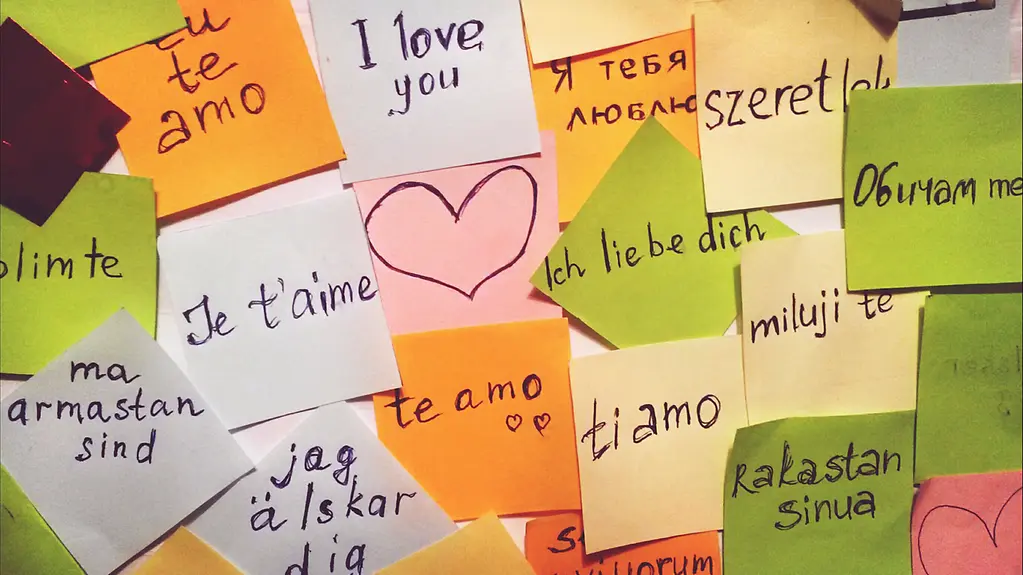 Eu
te
amo
I love
you
Я тебя
люблю
szeretlek
Обичам те
Ich liebe dich
Je t'aime
miluji te
ma
armastan
sind
te amo
ti amo
Rakastan
sinua
jag
älskar
dig